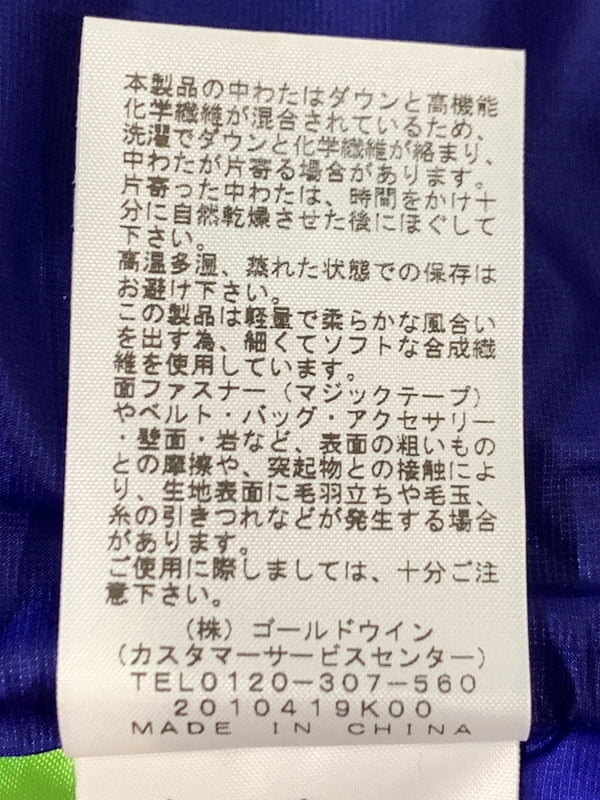 本製品の中わたはダウンと高機能
化学繊維が混合されているため、
洗濯でダウンと化学繊維が絡まり、
中わたが片寄る場合があります。
片寄った中わたは、時間をかけ十
分に自然乾燥させた後にほぐして
下さい。
高温多湿、蒸れた状態での保存は
お避け下さい。
この製品は軽量で柔らかな風合い
を出す為、細くてソフトな合成繊
維を使用しています。
面ファスナー（マジックテープ）
やベルト・バッグ・アクセサリー
・壁面・岩など、表面の粗いもの
との摩擦や、突起物との接触によ
り、生地表面に毛羽立ちや毛玉、
糸の引きつれなどが発生する場合
があります。
ご使用に際しましては、十分ご注
意下さい。
（株）ゴールドウイン
（カスタマーサービスセンター）
TEL0120-307-560
2010419K00
MADE IN CHINA